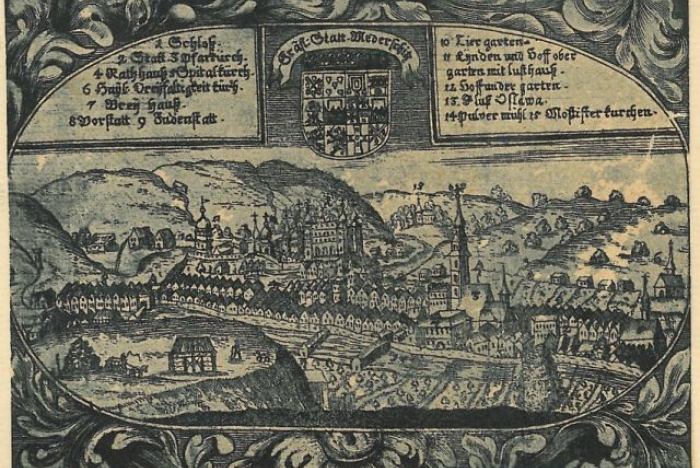 1 Schloß.
2 Statt 3 Pfarkürch.
4 Rathhauß 5 Spitalkürch.
6 Heÿl: Dreÿfaltigkeit kürch.
7 Breÿ hauß.
8 Vorstatt 9 Judenstatt
Gräfl: Statt Mederschitz
10 Tier garten.
11 Lynden und Hoff ober
garten mit lusthauß.
12 Hoffunder garten.
13. Fluß Oslawa.
14 Pulver mühl 15 Mostister kürchen.